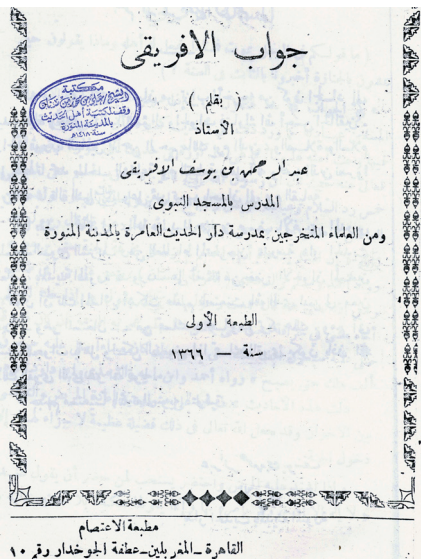 جواب الافريقى
مكتبة
وقف لمكتبة أهل الحديث
بالمدينة المنورة
بقلم )
الأستاذ
عبد الرحمن بن يوسف الافريقى
المدرس بالمسجد النبوى
ومن العلماء المتخرجين بمدرسة دار الحديث العامرة بالمدينة المنورة
الطبعة الأولى
سنة — ١٣٦٦
مطبعة الاعتصام
القاهرة ــ المغربلين ــ عطفة الجوخدار رقم ١٠